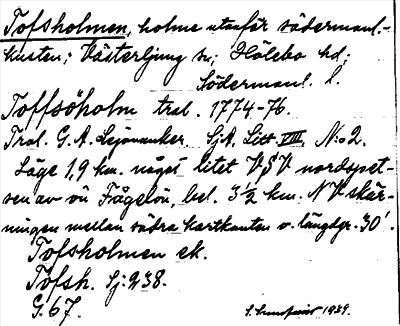 Tofsholmen, holme utanför södermanl.-
kusten; Västerljung sn; Hölebo hd;
Södermanl. l.
Toffsöholm tral. 1774-76.
Tral. G. A. Lejonanker SjA, Litt VIII, N:o 2.
Läge 1,9 km. något litet VSV nordspet-
sen av ön Fågelön, bel. 3½ km. NV skär-
ningen mellan södra kartkanten o. längdgr. 30'.
Tofsholmen ek.
Tofsh. Sj: 238.
G. 67.
1939.